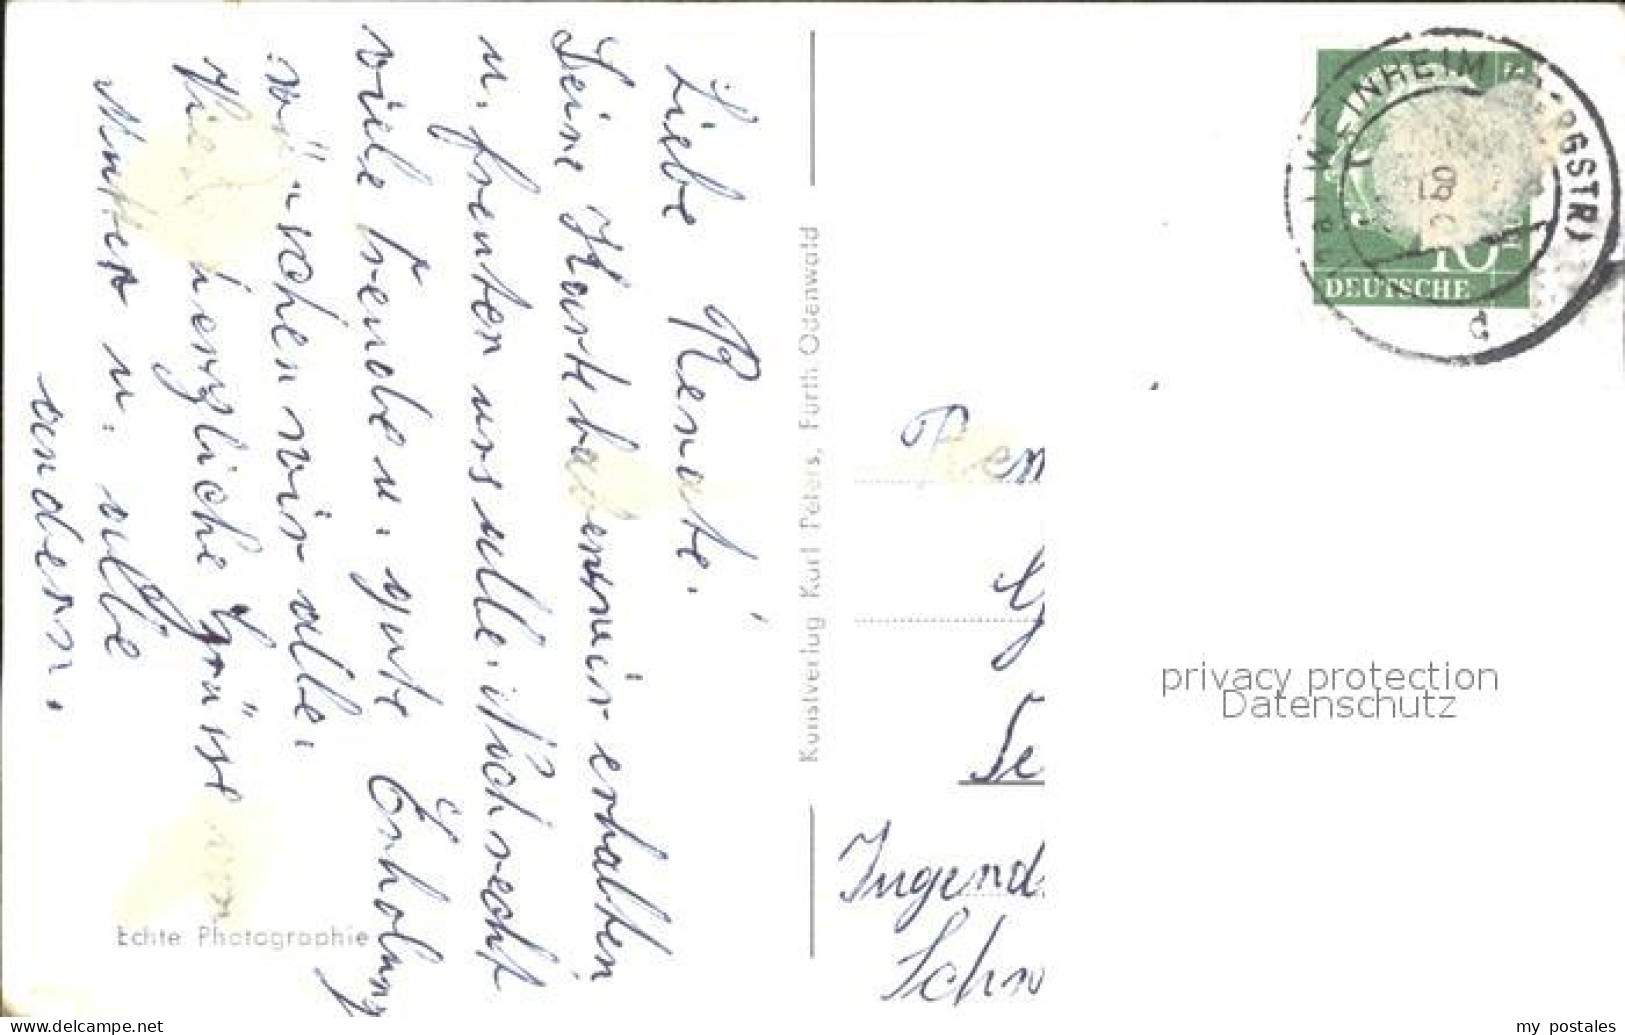 Liebe Renate!
Deine Karte haben wir erhalten
u. freuten uns alle. Noch recht
viele Freude u. gute Erholung
wünschen wir alle.
herzliche Grüsse
Mutter u. alle
andern.
Echte Photographie
Kunstverlag Karl Peters, Fürth Odenwald
WEINHEIM (BERGSTR)
10
DEUTSCHE
c
Ren
Se
Jugend
Schw
privacy protection
Datenschutz
www.delcampe.net
my_postales